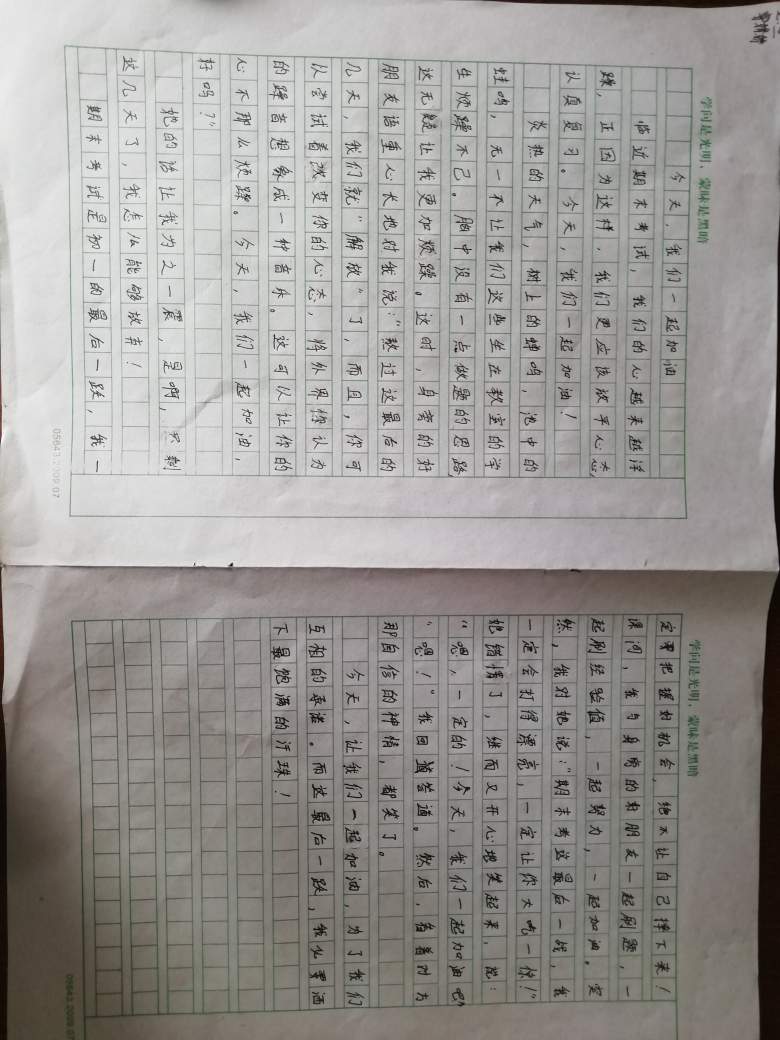 学问是光明，蒙昧是黑暗
今天，我们一起加油
临近期末考试，我们的心越来越浮
躁，正因为这样，我们更应该放平心态，
认真复习。今天，我们一起加油！
炎热的天气，树上的蝉鸣，池中的
蛙鸣，无一不让我们这些坐在教室的学
生烦躁不已。脑中没有一点做题的思路，
这无疑让我更加烦躁。这时，身旁的好
朋友语重心长地对我说：“熬过这最后的
几天，我们就“解放”了，而且，你可
以尝试着改变你的心态，将外界你认为
的躁音想象成一种音乐。这可以让你的
心不那么烦躁。今天，我们一起加油，
好吗？”
她的话让我为之一震，是啊，只剩
这几天了，我怎么能够放弃！
期末考试是初一的最后一跌，我一
05643.2009.07
学问是光明，蒙昧是黑暗
定要把握好机会，绝不让自己摔下来！
课间，我与身旁的好朋友一起刷题，一
起刷经验值，一起努力，一起加油。突
然，我对她说：“期末考这最后一战，我
一定会打得漂亮，一定让你大吃一惊！”
她错愕了，继而又开心地笑起来，说：
“嗯，一定的！今天，我们一起加油吧”
“嗯！”我回答道。然后，看着对方
那自信的神情，都笑了。
今天，让我们一起加油，为了我们
互相的承诺。而这最后一跌，我必要洒
下最饱满的汗珠！
05643.2009.07